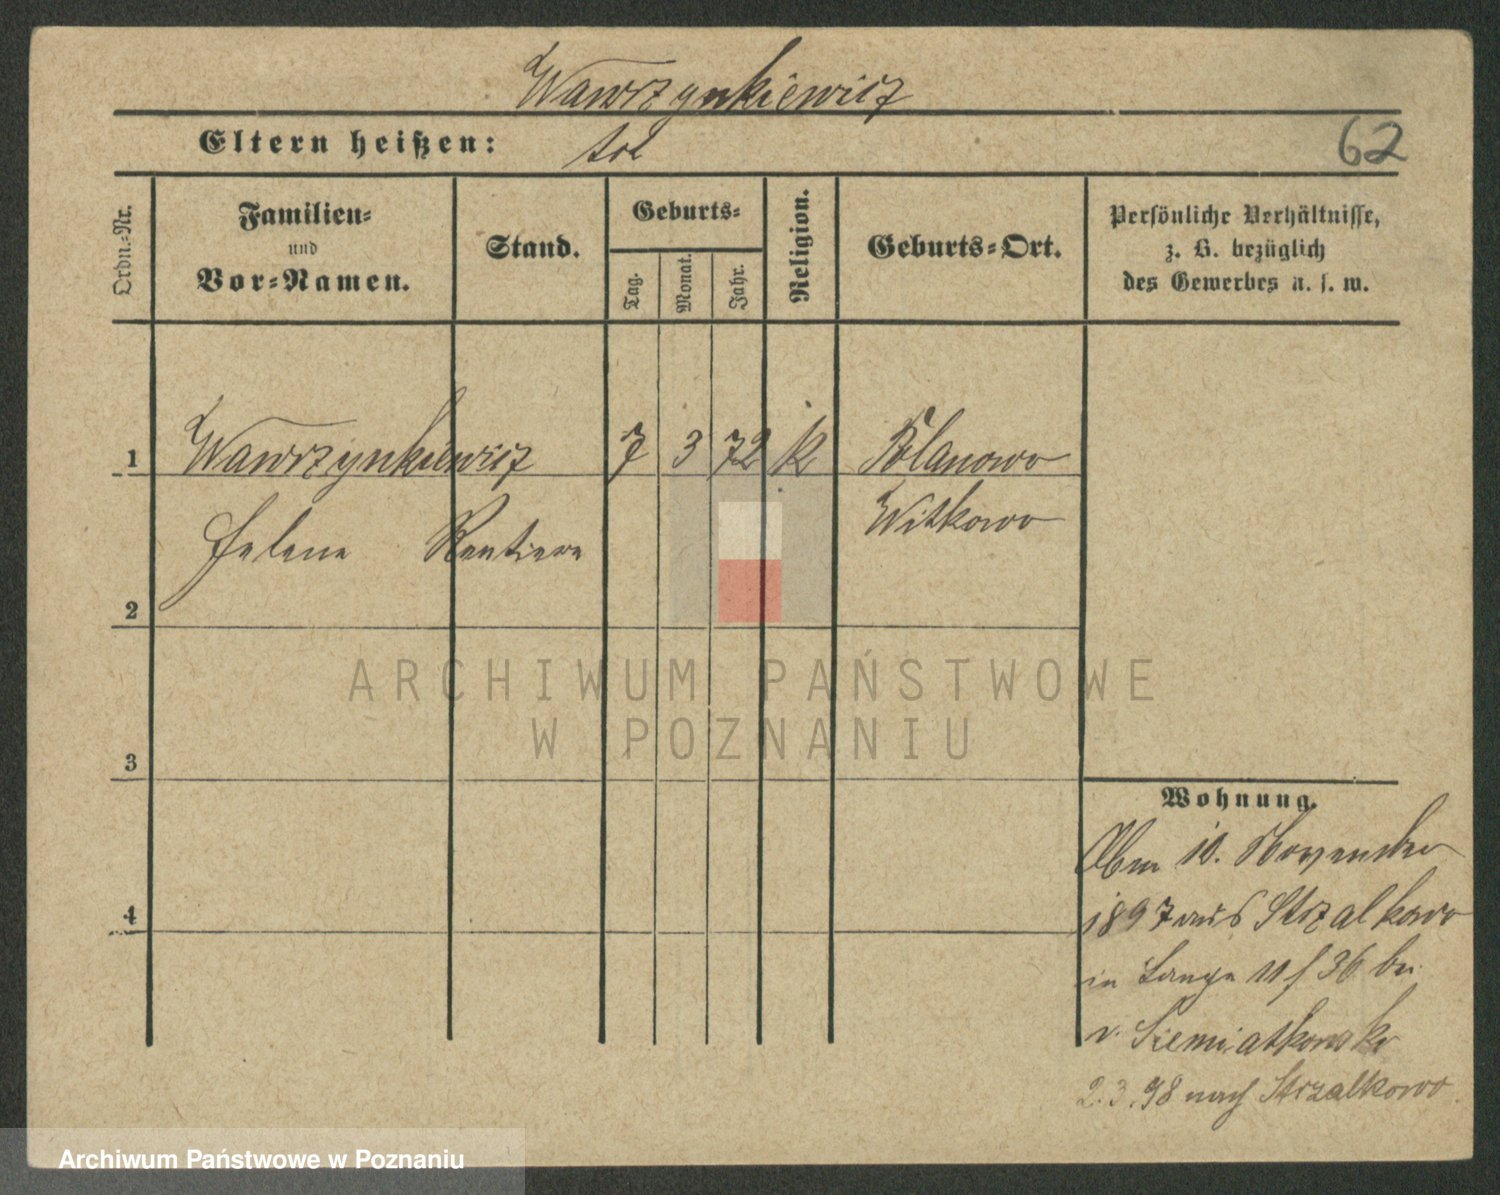 Wawrzynkiewicz
Eltern heißen: tot
62
Ordn.-Nr.
Familien-
und
Vor-Namen.
Stand.
Geburts-
Tag.
Monat.
Jahr.
Religion.
Geburts-Ort.
Persönliche Verhältnisse,
z. B. bezüglich
des Gewerbes u. s. w.
1 Wawrzynkiewicz 7 3 72 k Polanowo
Witkowo
Helene Rentiere
2
3
4
Wohnung.
10. November
1897 aus Strzalkowo
in Lange 11/36 bei
v. Siemiatkowsk
2.3.98 nach Strzalkowo
ARCHIWUM PAŃSTWOWE
W POZNANIU
Archiwum Państwowe w Poznaniu